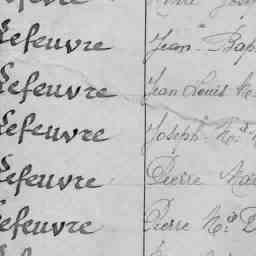 Lefeuvre Jean-Bap
Lefeuvre Jean Louis
Lefeuvre Joseph M.
Lefeuvre Pierre Ma
Lefeuvre Pierre M.